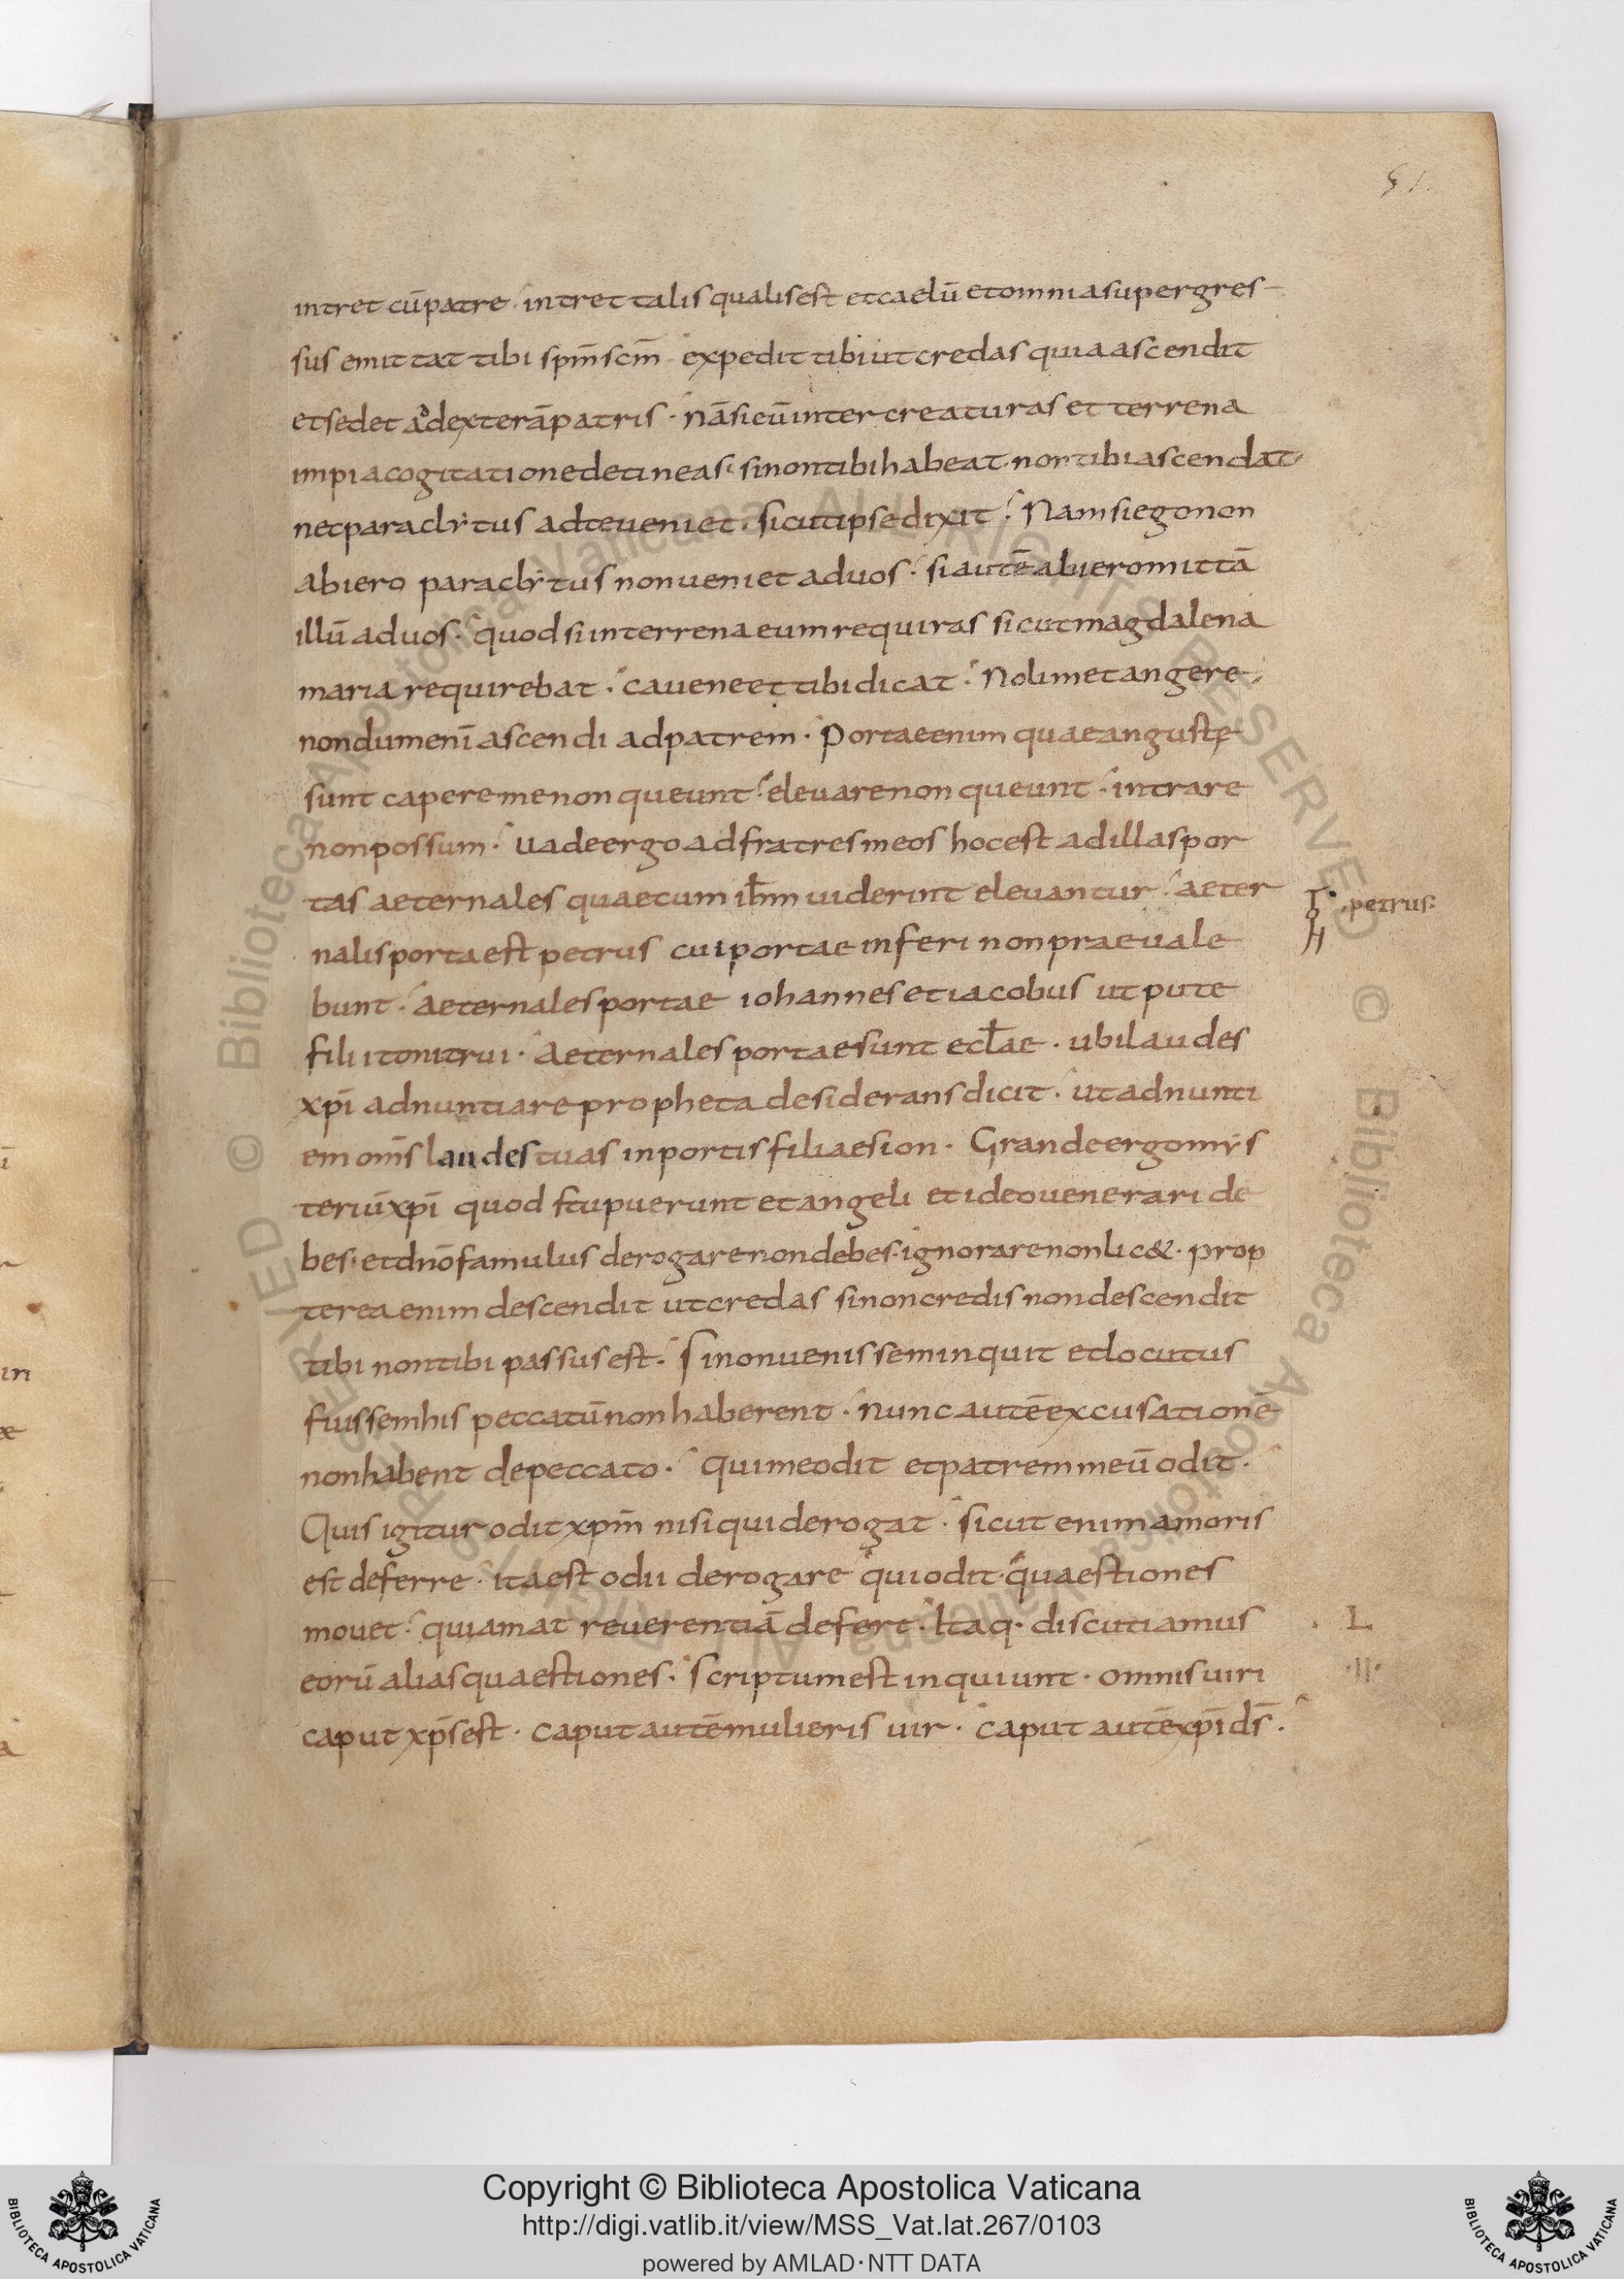 51.
intret cū patre · intret talis qualis est et caelū et omnia supergres-
sus emittat tibi spm̄ scm̄ · expedit tibi ut credas quia ascendit
et sedet ad dexterā patris · nā si eū inter creaturas et terrena
impia cogitatione detineas · si non tibi habeat · non tibi ascendat ·
nec paraclytus ad te veniet · sicut ipse dixit · Nam si ego non
abiero paraclytus non veniet ad vos · si autē abiero mittā
illū ad vos · quod si in terrena eum requiras sicut magdalena
maria requirebat · cave ne et tibi dicat · Noli me tangere ·
nondum enī ascendi ad patrem · Portae enim quae angustę
sunt capere me non queunt · elevare non queunt · intrare
non possum · vade ergo ad fratres meos hoc est ad illas por
tas aeternales quae cum ihm̄ viderint elevantur · aeter
· petrus:
nalis porta est petrus cui portae inferi non praevale
bunt · aeternales portae iohannes et iacobus ut pute
filii tonitrui · Aeternales portae sunt eclae · ubi laudes
xpī adnuntiare propheta desiderans dicit · ut adnunti
em omīs laudes tuas in portis filiae sion · Grande ergo mys
teriū xpī quod stupuerunt et angeli et ideo venerari de
bes · et dnō famulus derogare non debes · ignorare non lic& · prop
terea enim descendit ut credas si non credis non descendit
tibi non tibi passus est · Si non venissem inquit et locutus
fuissem his peccatū non haberent · nunc autē excusationē
non habent de peccato · Qui me odit et patrem meū odit ·
Quis igitur odit xpm̄ nisi qui derogat · sicut enim amoris
est deferre · ita est odii derogare qui odit · quaestiones
movet · qui amat reverentiā defert · Itaq· discutiamus
L
eorū alias quaestiones · scriptum est inquiunt · omnis viri
·II·
caput xps̄ est · caput autē mulieris vir · caput autē xpī ds̄ ·
Copyright © Biblioteca Apostolica Vaticana
http://digi.vatlib.it/view/MSS_Vat.lat.267/0103
powered by AMLAD·NTT DATA
BIBLIOTECA APOSTOLICA VATICANA
BIBLIOTECA APOSTOLICA VATICANA